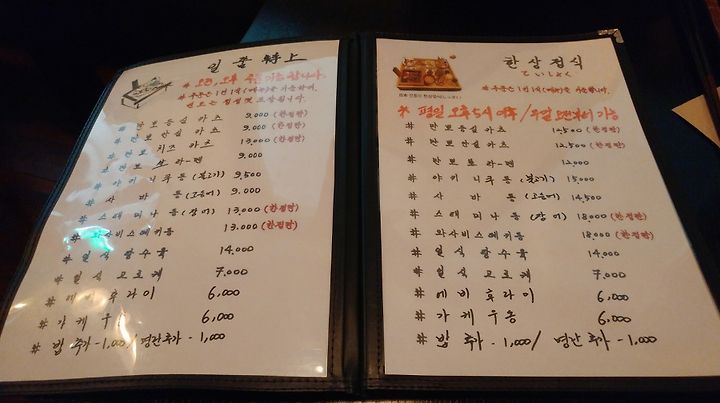 일품特上
# 오전, 오후 주문 가능합니다.
# 주문은 1인 1식(메뉴)을 기준하며,
# 반보등심카츠 9,000 (한정판)
# 반보안심카츠 9,000 (한정판)
# 반보치즈카츠 13,000 (한정판)
라-멘 9,000
# 야키니쿠동 (불고기) 9,500
# 사바동 (고등어) 9,000
# 스태미나동 (장어) 13,000 (한정판)
# 와사비스테키동 13,000 (한정판)
# 일식탕수육 14,000
# 일식고로케 7,000
# 에비후라이 6,000
# 가케우동 6,000
# 밥추가 -1,000 / 명란추가 -1,000
한상정식
ていしょく
# 주문은 1인 1식(메뉴)을 기준합니다.
* 평일 오후 5시 이후 / 주말 오전부터 가능
# 반보등심카츠 12,500 (한정판)
# 반보안심카츠 12,500 (한정판)
# 반보라-멘 12,000
# 야키니쿠동 (불고기) 15,000
# 사바동 (고등어) 14,500
# 스태미나동 (장어) 18,000 (한정판)
# 와사비스테키동 18,000 (한정판)
# 일식탕수육 14,000
# 일식고로케 7,000
# 에비후라이 6,000
# 가케우동 6,000
# 밥추가 - 1,000 / 명란추가 -1,000